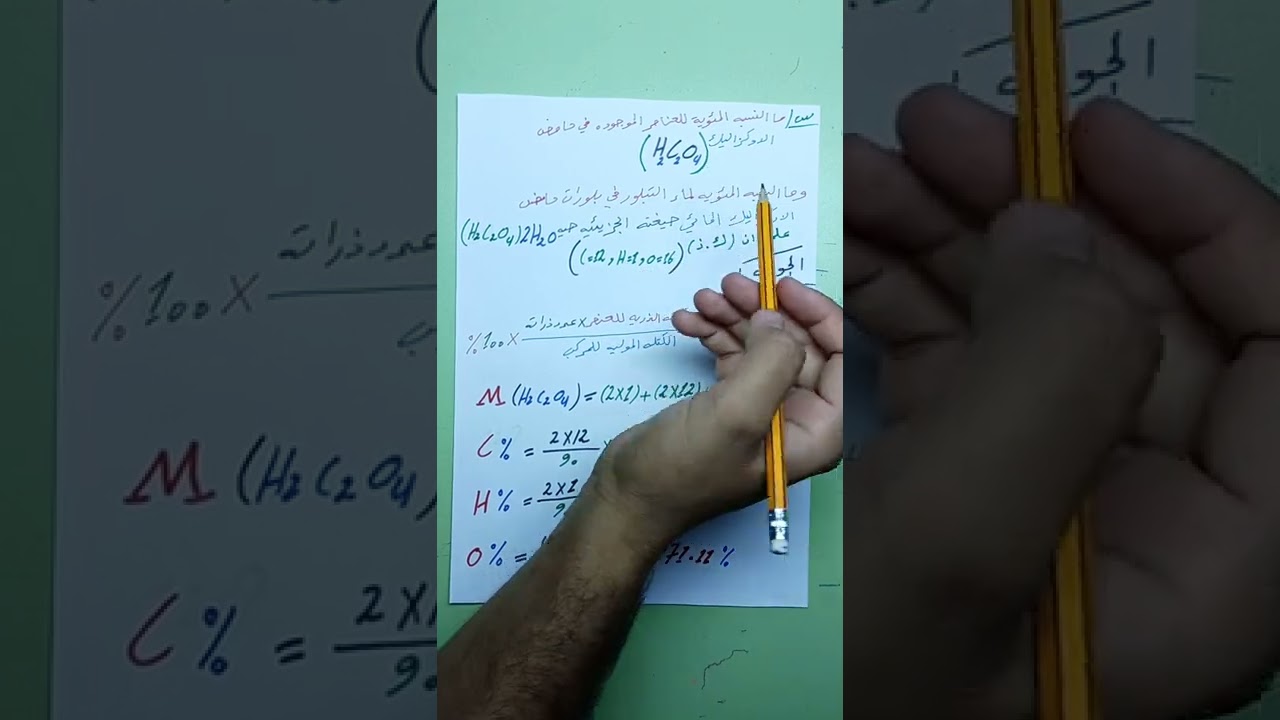 س/ ما النسبه المئوية للعناصر الموجوده في حامض
الاوكزاليك (H2C2O4)
وما المئويه لماء التبلور في بلورات حامض
المائي صيغته الجزيئيه هيه (H2C2O4)2H2O
علما ان (ك.ذ) (C=12, H=1, O=16)
الجواب
الذريه للعنصر × عدد ذراته
الكتله الموليه للمركب
×100%
M (H2C2O4) = (2X1) + (2X12)
C% = 2X12/90
H% = 2X1
O% = 71.11%